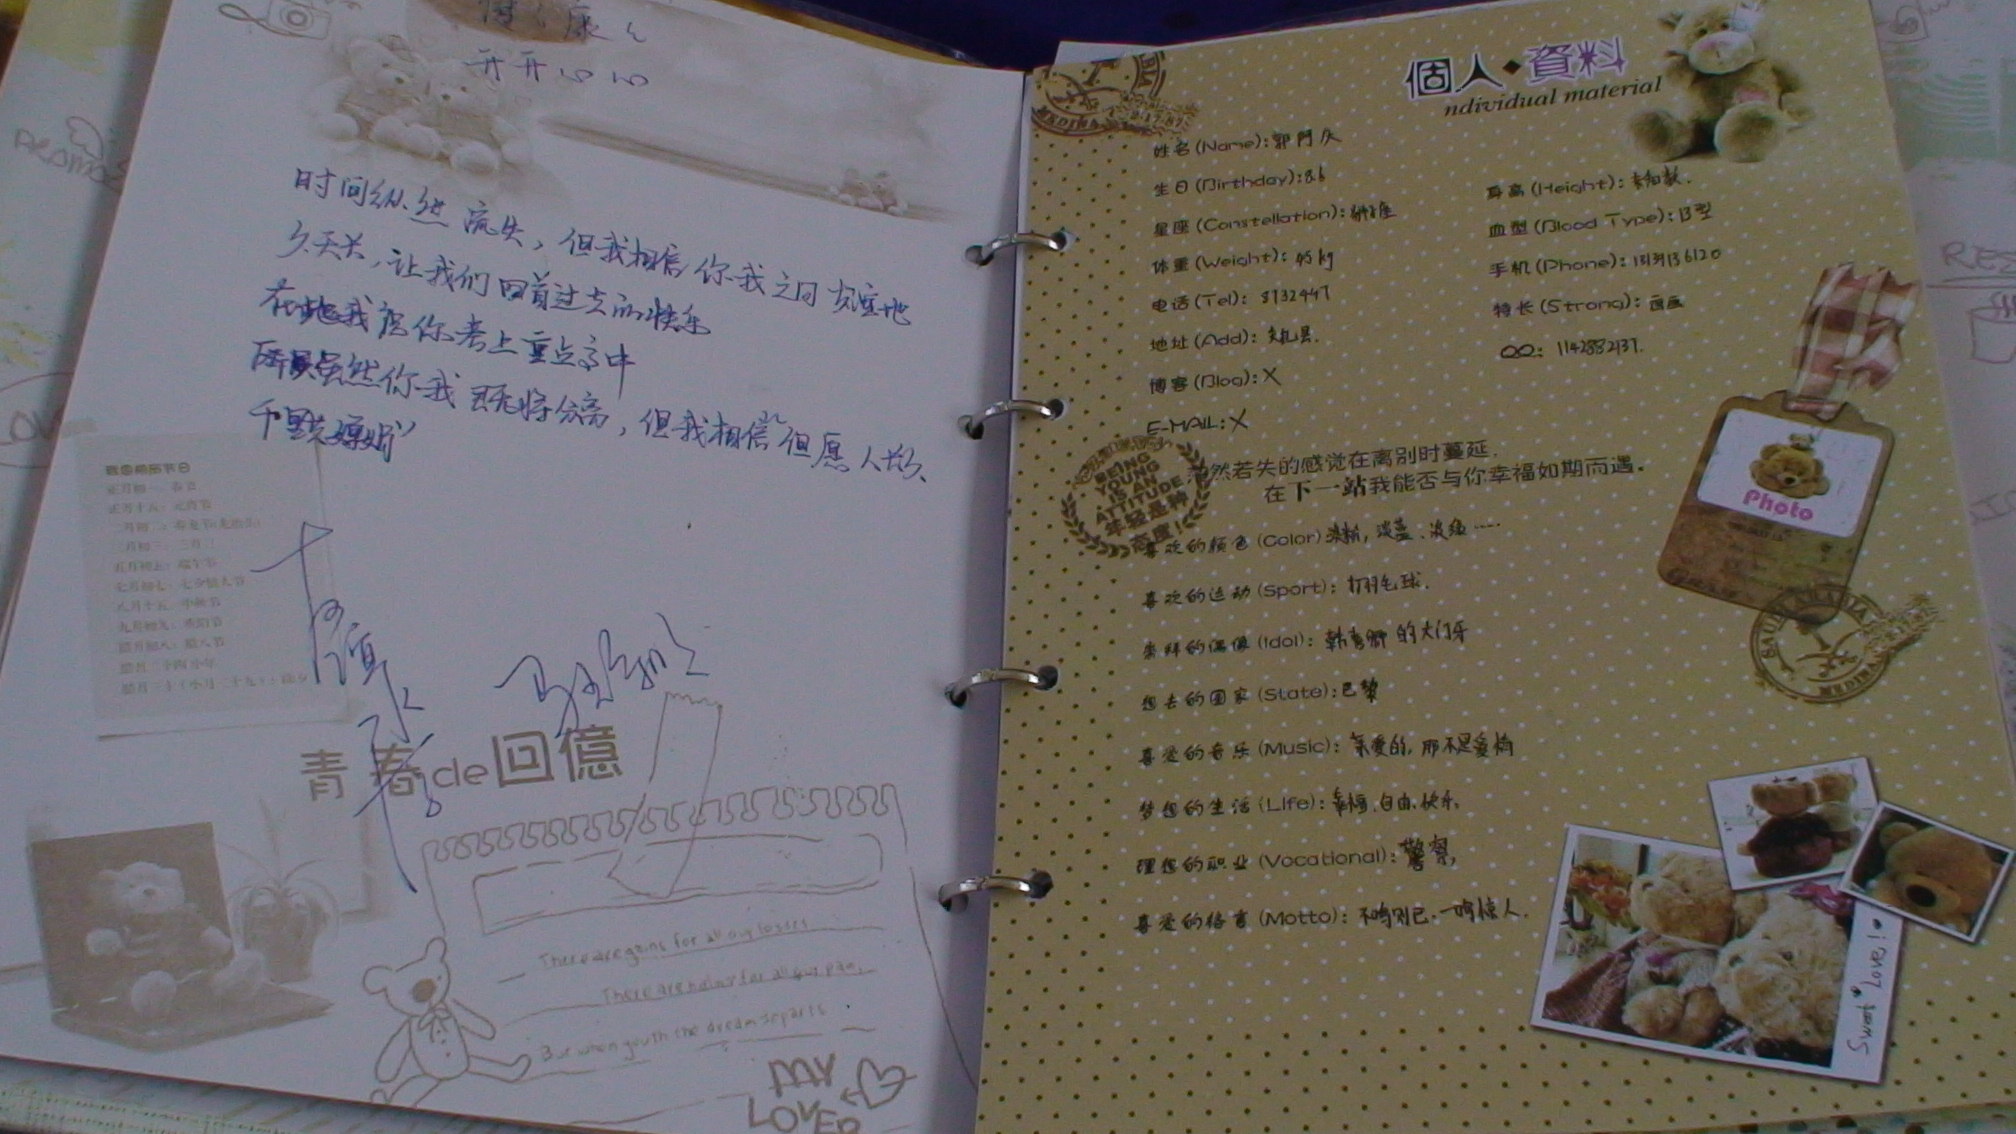 开开心心
时间纵然流失，但我相信你我之间友谊地
久天长，让我们回首过去的快乐
在此我祝你考上重点高中
虽然你我即将分离，但我相信但愿人长久
千里共婵娟
正月初一：春节
正月十五：元宵节
五月初五：端午节
八月十五：中秋节
九月初九：重阳节
青春de回憶
There are gains for all our losses
But when youth the dream departs
MY
LOVER
個人◆資料
ndividual material
姓名(Name):郭
生日(Birthday):8.6
星座(Constellation):狮子座
体重(Weight):45kg
电话(Tel):8132447
地址(Add):
博客(Blog):X
E-MAIL:X
身高(Height):
血型(Blood Type):B型
手机(Phone):
特长(Strong):画画
QQ:1142882137.
然若失的感觉在离别时蔓延.
在下一站我能否与你幸福如期而遇。
BEING
YOUNG
IS AN
ATTITUDE
年轻是种
态度!
喜欢的颜色(Color)淡粉，淡蓝、淡绿……
喜欢的运动(Sport):打羽毛球.
崇拜的偶像(Idol):的大门牙
想去的国家(State):巴黎
喜爱的音乐(Music):亲爱的,那不是爱情
梦想的生活(Life):幸福,自由,快乐.
理想的职业(Vocational):警察,
喜爱的格言(Motto):不鸣则已.一鸣惊人.
Photo
Sweet Love!